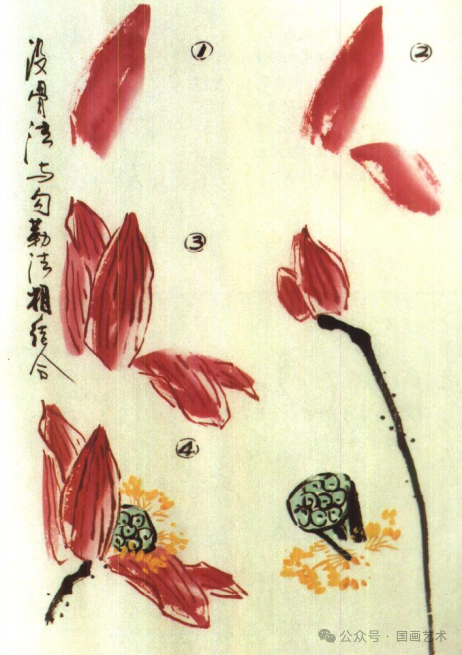 没骨法与勾勒法相结合
①
②
③
④
公众号·国画艺术